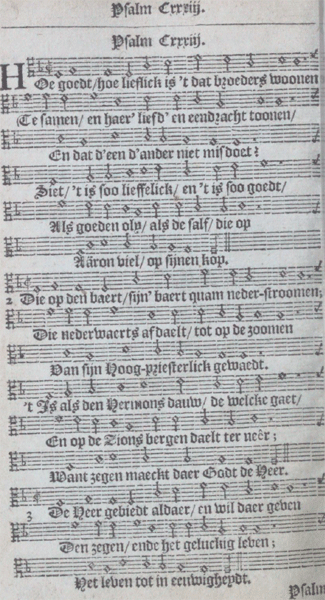 Psalm Cxxxiij.
Psalm Cxxxiij.
HOe goedt/hoe lieflick is 't dat broeders woonen
Te samen/ en haer' liefd' en eendracht toonen/
En dat d'een d'ander niet misdoet?
Siet/ 't is soo lieffelick/ en 't is soo goedt/
Als goeden oly/ als de salf/ die op
Aäron viel/ op sijnen kop.
2 Die op den baert/sijn' baert quam neder-stroomen;
Die nederwaerts afdaelt/ tot op de zoomen
Van sijn Hoog-priesterlick gewaedt.
't Is als den Hermons dauw/ de welcke gaet/
En op de Zions bergen daelt ter neêr;
Want zegen maeckt daer Godt de Heer.
3 De Heer gebiedt aldaer/ en wil daer geven
Den zegen/ ende het geluckig leven;
Het leven tot in eeuwigheydt.
Psalm